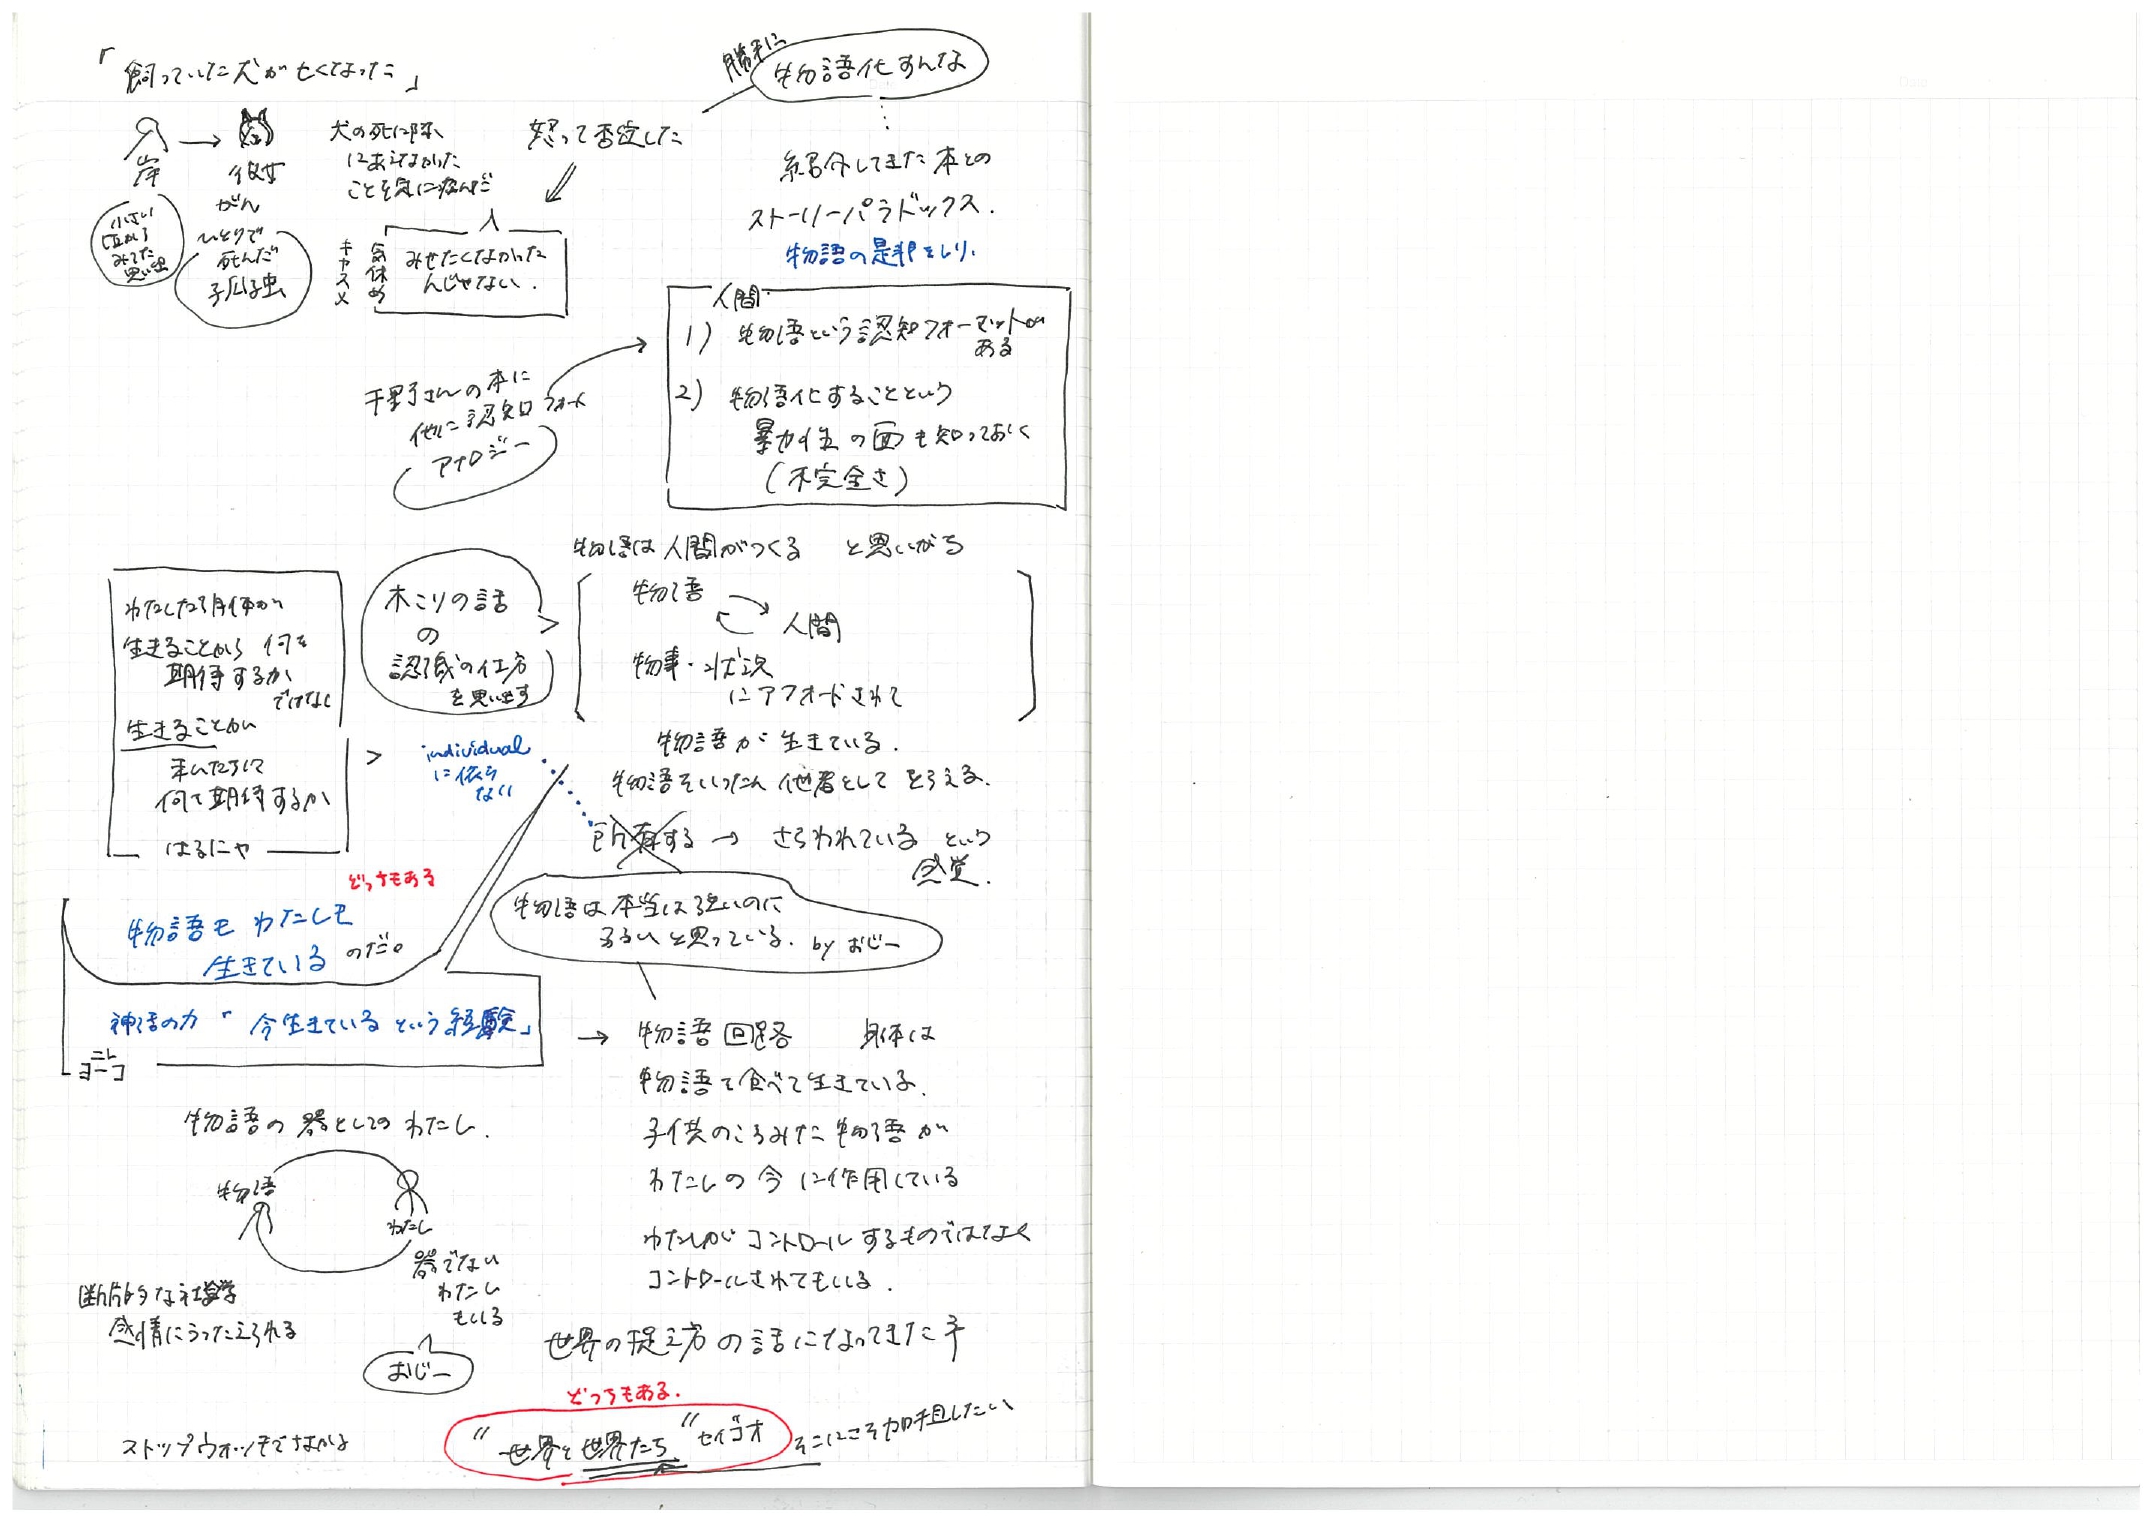 「飼っていた犬が亡くなった」
岸
彼女
がん
ひとりで
死んだ
小さい
みてた
思い出
犬の死に際
にあえなかった
ことを気に病んだ
怒って否定した
勝手に
物語化すんな
気休め
キヤスメ
みせたくなかった
んじゃない.
紹介してきた本との
ストーリーパラドックス.
物語の是非をしり.
人間
1) 物語という認知フォーマットが
ある
2) 物語化することという
暴力性の面も知っておく
(不完全さ)
千里子さんの本に
他に認知フォーマット
アナロジー
物語は人間がつくる と思いがち
物語
人間
物事・状況
にアフォードされて
木こりの話
の
認識の仕方
を思い出す
わたしたち自体が
生きることから 何を
期待するか
ではなく
生きることが
わたしたちに
何を期待するか
はるにゃ
individual
に依ら
ない
物語が生きている.
物語をいったん他者としてとらえる.
所有する → さらわれている という
感覚.
どっちもある
物語も わたしも
生きている のだ。
物語は本当は強いのに
弱いと思っている. by おじー
神話の力「今生きているという経験」
ニレ
ヨーコ
→ 物語回路 身体は
物語を食べて生きている.
子供のころみた物語が
わたしの今に作用している
わたしがコントロールするものではなく
コントロールされてもいる.
物語の器としてのわたし.
物語
わたし
器でない
わたし
もいる
おじー
断片的な社会学
感情にうったえられる
世界の捉え方の話になってきたぞ
どっちもある.
"世界と世界たち" セイゴオ
そこにこそ加担したい